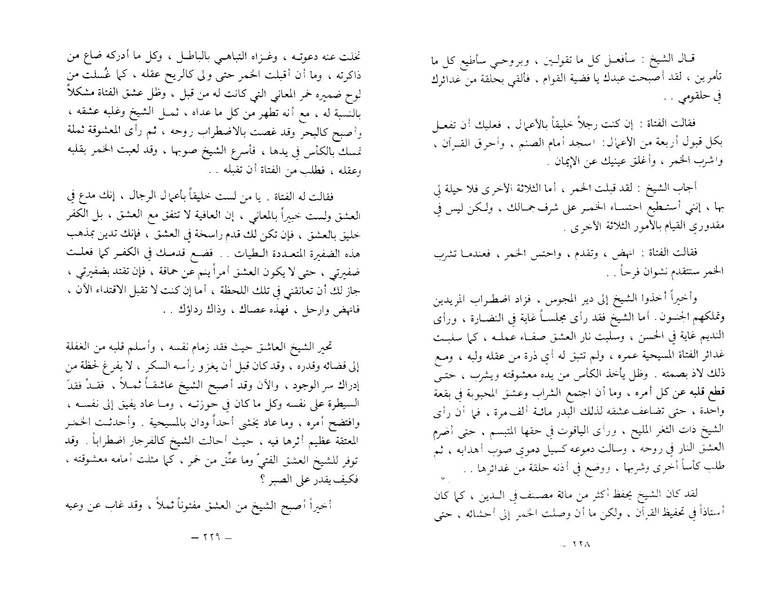 قال الشيخ : سأفعل كل ما تقولين ، وبروحي سأطيع كل ما
تأمرين ، لقد أصبحت عبدك يا فضية القوام ، فألقي بحلقة من غدائرك
في حلقومي . .
فقالت الفتاة : إن كنت رجلاً خليقاً بالأعمال ، فعليك أن تفعل
بكل قبول أربعة من الأعمال : اسجد أمام الصنم ، وأحرق القرآن ،
واشرب الخمر ، وأغلق عينيك عن الإيمان .
أجاب الشيخ : لقد قبلت الخمر ، أما الثلاثة الأخرى فلا حيلة لي
بها ، إنني أستطيع احتساء الخمر على شرف جمالك ، ولكن ليس في
مقدوري القيام بالأمور الثلاثة الأخرى .
فقالت الفتاة : انهض ، وتقدم ، واحتس الخمر ، فعندما تشرب
الخمر ستتقدم نشوان فرحاً . .
وأخيراً أخذوا الشيخ إلى دير المجوس ، فزاد اضطراب المريدين
وتملكهم الجنون. أما الشيخ فقد رأى مجلساً غاية في النضارة ، ورأى
النديم غاية في الحسن ، وسلبت نار العشق صفاء عمله ، كما سلبت
غدائر الفتاة المسيحية عمره ، ولم تتبق له أي ذرة من عقله ولبه ، ومع
ذلك لاذ بصمته . وظل يأخذ الكأس من يده معشوقته ويشرب ، حتى
قطع قلبه عن كل أمره ، وما أن اجتمع الشراب وعشق المحبوبة في بقعة
واحدة ، حتى تضاعف عشقه لذلك البدر مائة ألف مرة ، فما أن رأى
الشيخ ذات الثغر المليح ، ورأى الياقوت في حقها المتبسم ، حتى أضرم
العشق النار في روحه ، وسالت دموعه كسيل دموي صوب أهدابه ، ثم
طلب كأساً أخرى وشربها ، ووضع في أذنه حلقة من غدائرها . .
لقد كان الشيخ يحفظ أكثر من مائة مصنف في الدين ، كما كان
أستاذاً في تحفيظ القرآن ، ولكن ما أن وصلت الخمر إلى أحشائه ، حتى
٢٢٨ –
تخلت عنه دعوته ، وغزاه التباهي بالباطل ، وكل ما أدركه ضاع من
ذاكرته ، وما أن أقبلت الخمر حتى ولى كالريح عقله ، كما غُسلت من
لوح ضميره خمر المعاني التي كانت له من قبل ، وظل عشق الفتاة مشكلاً
بالنسبة له ، مع أنه تطهر من كل ما عداه ، ثمل الشيخ وغلبه عشقه ،
وأصبح كالبحر وقد غصت بالاضطراب روحه ، ثم رأى المعشوقة ثملة
تمسك بالكأس في يدها ، فأسرع الشيخ صوبها ، وقد لعبت الخمر بقلبه
وعقله ، فطلب من الفتاة أن تقبله . .
فقالت له الفتاة . يا من لست خليقاً بأعمال الرجال ، إنك مدع في
العشق ولست خبيراً بالمعاني ، إن العافية لا تتفق مع العشق ، بل الكفر
خليق بالعشق ، فإن تكن لك قدم راسخة في العشق ، فإنك تدين بمذهب
هذه الضفيرة المتعددة الطيات . . فضع قدمك في الكفر كما فعلت
ضفيرتي ، حتى لا يكون العشق أمراً ينم عن حماقة ، فإن تقتد بضفيرتي ،
جاز لك أن تعانقني في تلك اللحظة ، أما إن كنت لا تقبل الاقتداء الآن ،
فانهض وارحل ، فهذه عصاك ، وذاك رداؤك . .
تحير الشيخ العاشق حيث فقد زمام نفسه ، وأسلم قلبه من الغفلة
إلى قضائه وقدره ، وقد كان قبل أن يغزو رأسه السكر ، لا يفرغ لحظة من
إدراك سر الوجود ، والآن وقد أصبح الشيخ عاشقاً ثملاً ، فقد فقد
السيطرة على نفسه وكل ما كان في حوزته ، وما عاد يفيق إلى نفسه ،
وافتضح أمره ، وما عاد يخشى أحداً ودان بالمسيحية . وأحدثت الخمر
المعتقة عظيم أثرها فيه ، حيث أحالت الشيخ كالفرجار اضطراباً . وقد
توفر للشيخ العشق الفتيّ وما عتِّق من خمر ، كما مثلت أمامه معشوقته ،
فكيف يقدر على الصبر ؟
أخيراً أصبح الشيخ من العشق مفتوناً ثملاً ، وقد غاب عن وعيه
– ٢٢٩ –